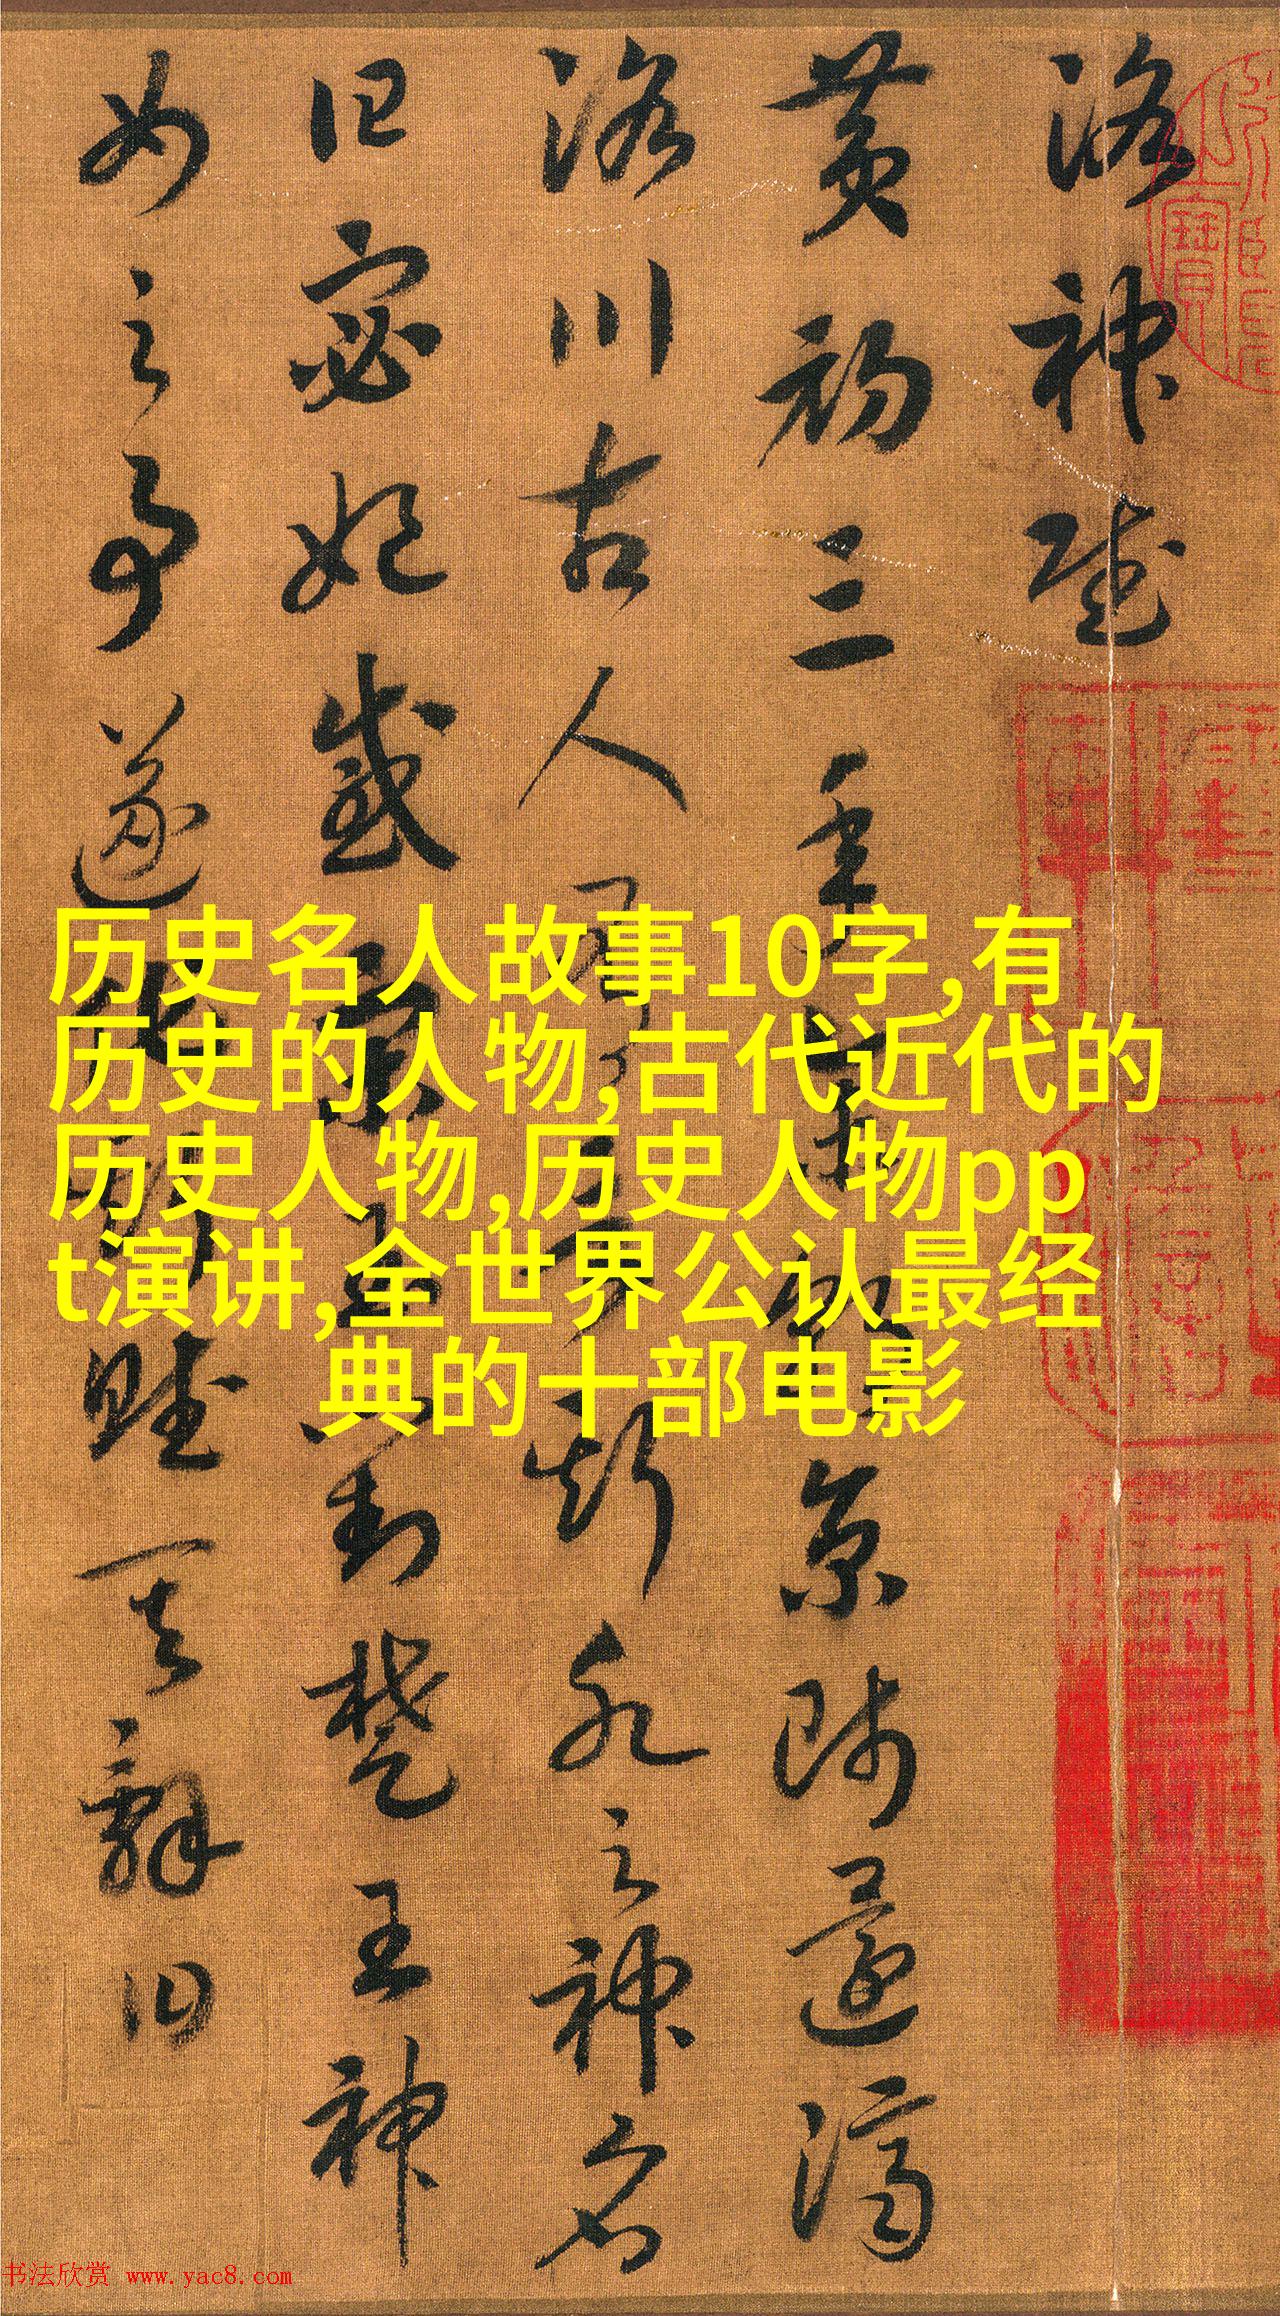 洛神賦
黄初三年余朝京師還濟
洛川古人有言斯水之神名
曰宓妃感宋玉對楚王神
女之事遂作斯賦其辭曰
历史名人故事10字,有
历史的人物,古代近代的
历史人物,历史人物pp
t演讲,全世界公认最经
典的十部电影
书法欣赏 www.yac8.com